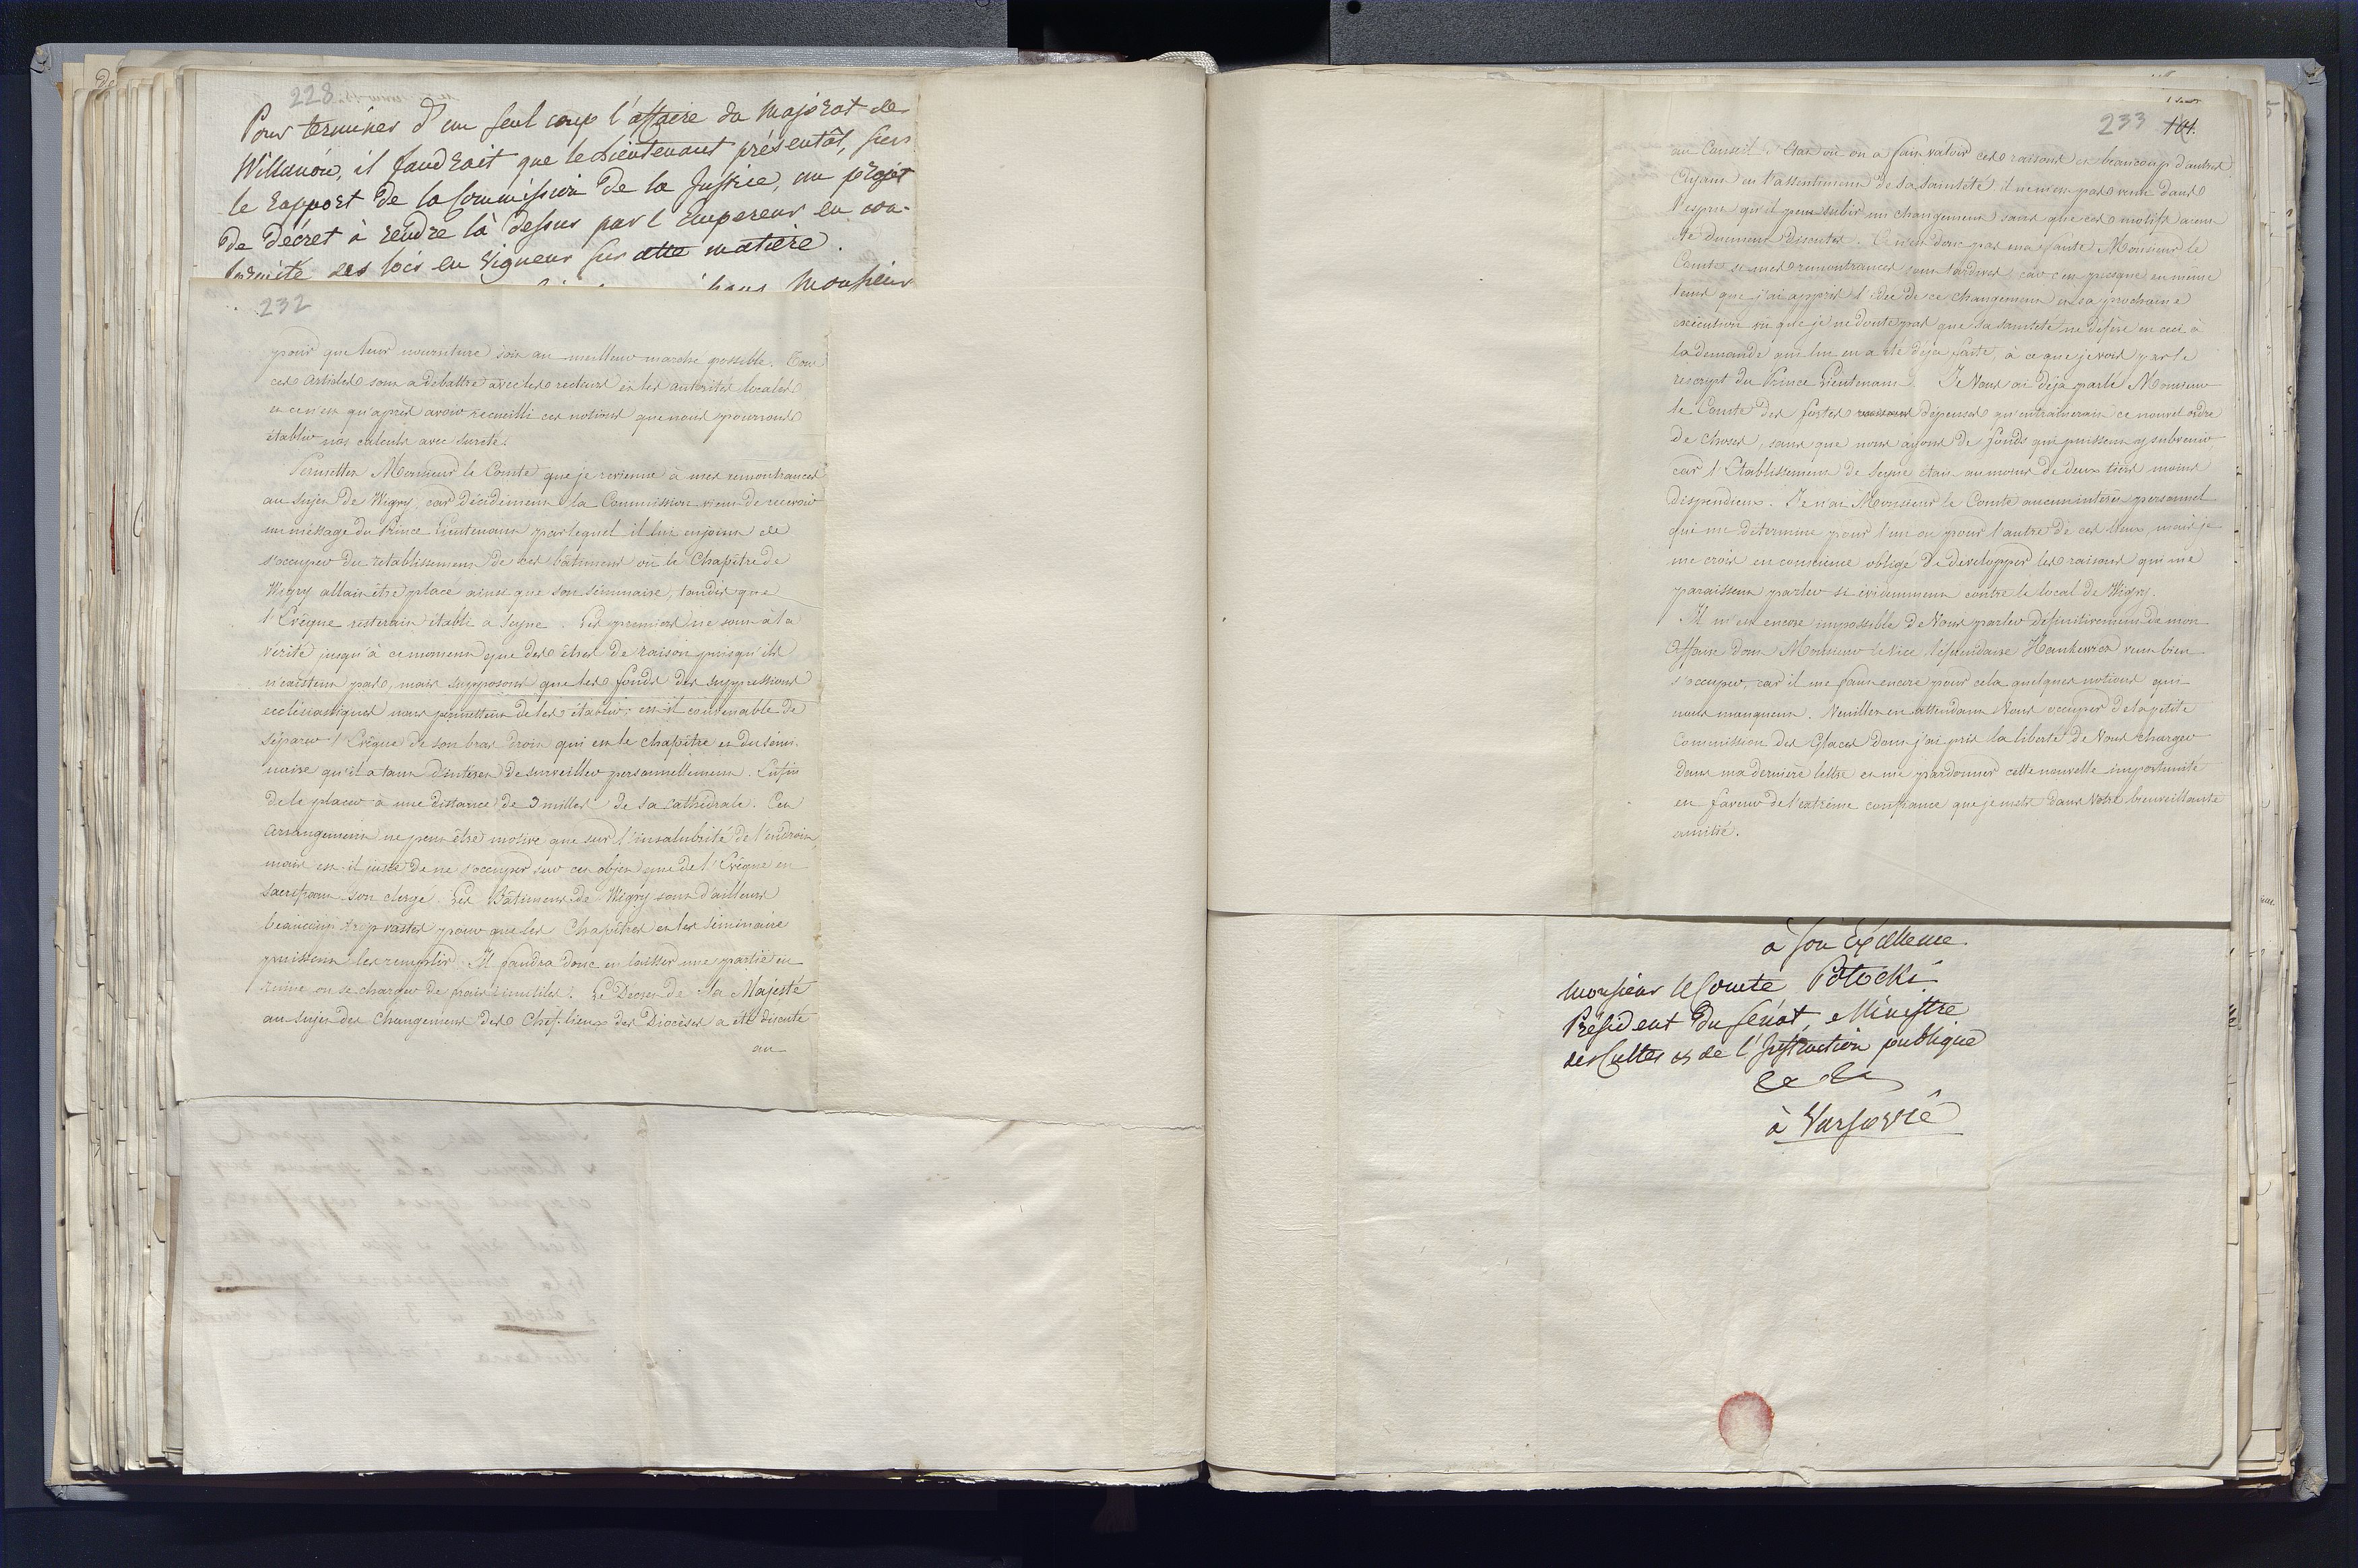 228
Pour terminer d'un seul coup l'affaire du Majorat de
Willanów, il faudrait que le Lieutenant présentât, sur
le rapport de la Commission de la Justice, un projet
de décret à rendre là dessus par l'Empereur en con-
formité des lois en vigueur sur cette matière.
Monsieur
232
pour que leur nourriture soit au meilleur marché possible. Tous
ces articles sont à débattre avec les recteurs et les autorités locales
et ce n'est qu'après avoir recueilli ces notions que nous pourrons
établir nos calculs avec sureté.
Permettez Monsieur le Comte que je revienne à mes remontrances
au sujet de Wigry, car décidément la Commission vient de recevoir
un message du Prince Lieutenant par lequel il lui enjoint de
s'occuper du rétablissement de ces bâtimens où le Chapitre de
Wigry allait être placé ainsi que son séminaire, tandis que
l'Evêque resterait établi à Seyne. Les premiers ne sont à la
vérité jusqu'à ce moment que des êtres de raison puisqu'ils
n'existent pas, mais supposons que les fonds des suppressions
ecclésiastiques nous permettent de les établir; est-il convenable de
séparer l'Evêque de son bras droit qui est le chapitre et du sémi-
naire qu'il a tant d'intéret de surveiller personnellement. Enfin
de le placer à une distance de 3 milles de sa cathédrale. Cet
arrangement ne peut être motivé que sur l'insalubrité de l'endroit,
mais est-il juste de ne s'occuper sur cet objet que de l'Evêque en
sacrifiant son clergé. Les Bâtimens de Wigry sont d'ailleurs
beaucoup trop vastes pour que les Chapitres et les séminaire
puissent les remplir. Il faudra donc en laisser une partie en
ruine ou se charger de frais inutiles. Le Decret de Sa Majesté
au sujet des Changemens des Chef-lieux des Diocèses a été discuté
au
233 101.
au Conseil d'Etat où on a fait valoir ces raisons et beaucoup d'autres.
Ayant eu l'assentiment de sa sainteté il ne m'est pas venu dans
l'esprit qu'il peut subir un changement sans que ces motifs aient
été dument discutés. Ce n'est donc pas ma faute Monsieur le
Comte si mes remontrances sont tardives, car c'est presque en même
tems que j'ai appris l'idée de ce changement et sa prochaine
exécution vu que je ne doute pas que sa sainteté ne défère en ceci à
la demande qui lui en a été déja faite, à ce que je vois par le
rescript du Prince Lieutenant. Je Vous ai déja parlé Monsieur
le Comte des fastes dépenses qu'entrainerait ce nouvel ordre
de choses, sans que nous ayons de fonds qui puissent y subvenir
car l'Etablissement de Seyne était au moins de deux tiers moins
dispendieux. Je n'ai Monsieur le Comte aucun intérêt personnel
qui me détermine pour l'un ou pour l'autre de ces lieux, mais je
me crois en conscience obligé de développer les raisons qui me
paraissent parler si évidemment contre le local de Wigry.
Il m'est encore impossible de Vous parler définitivement de mon
Affaire dont Monsieur le Vice Référendaire Hankiewicz veut bien
s'occuper, car il me faut encore pour cela quelques notions qui
nous manquent. Veuillez en attendant Vous occuper de la petite
Commission des Glaces dont j'ai pris la liberté de Vous charger
dans ma dernière lettre et me pardonner cette nouvelle importunité
en faveur de l'extrême confiance que je mets dans Votre bienveillante
amitié.
à Son Excellence
Monsieur le Comte Potocki
Président du Sénat, Ministre
des Cultes et de l'Instruction publique
à Varsovie